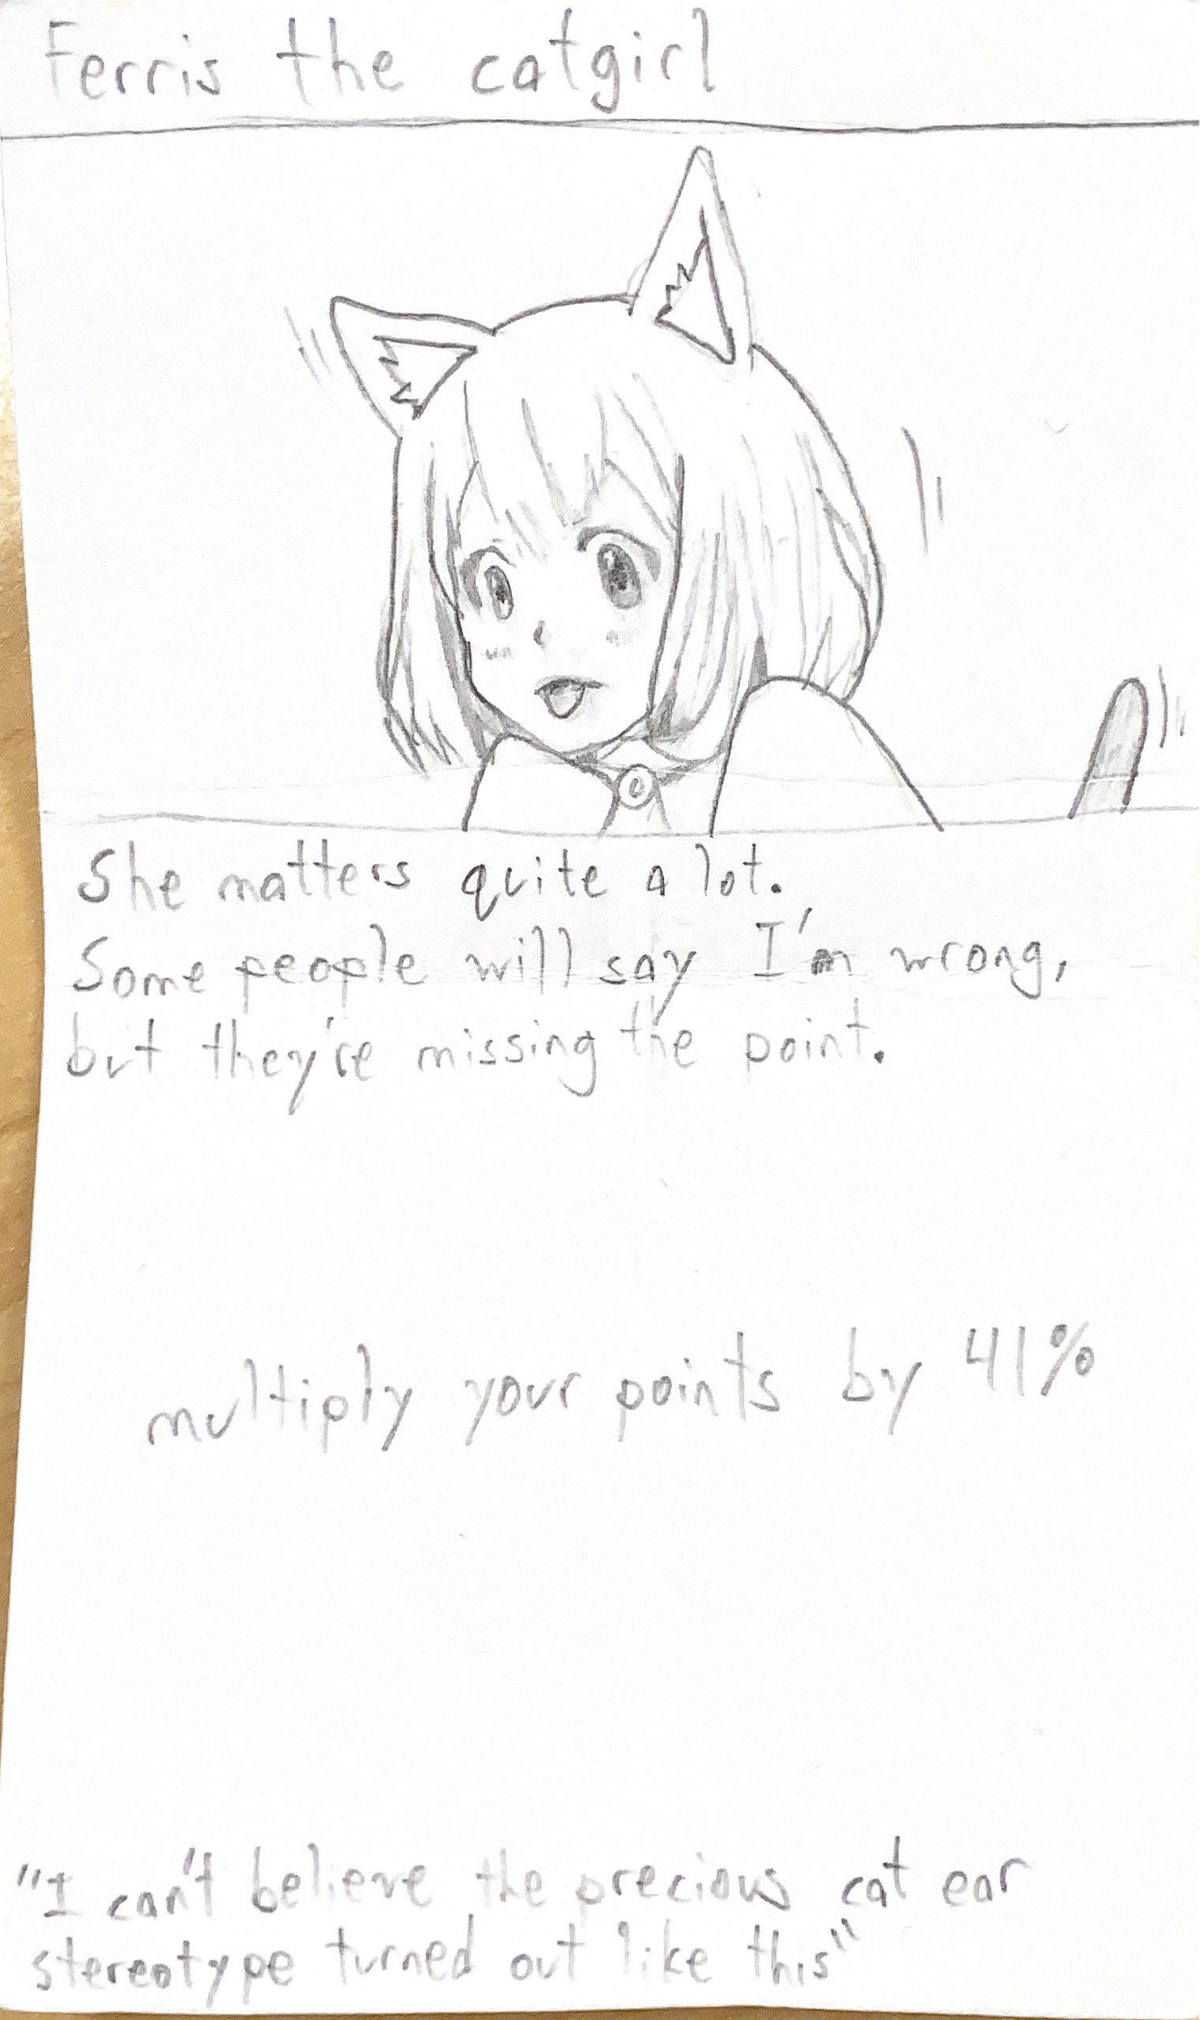 Ferris the catgirl
She matters quite a lot.
Some people will say I'm wrong,
but they're missing the point.
multiply your points by 41%
"I can't believe the precious cat ear
stereotype turned out like this"